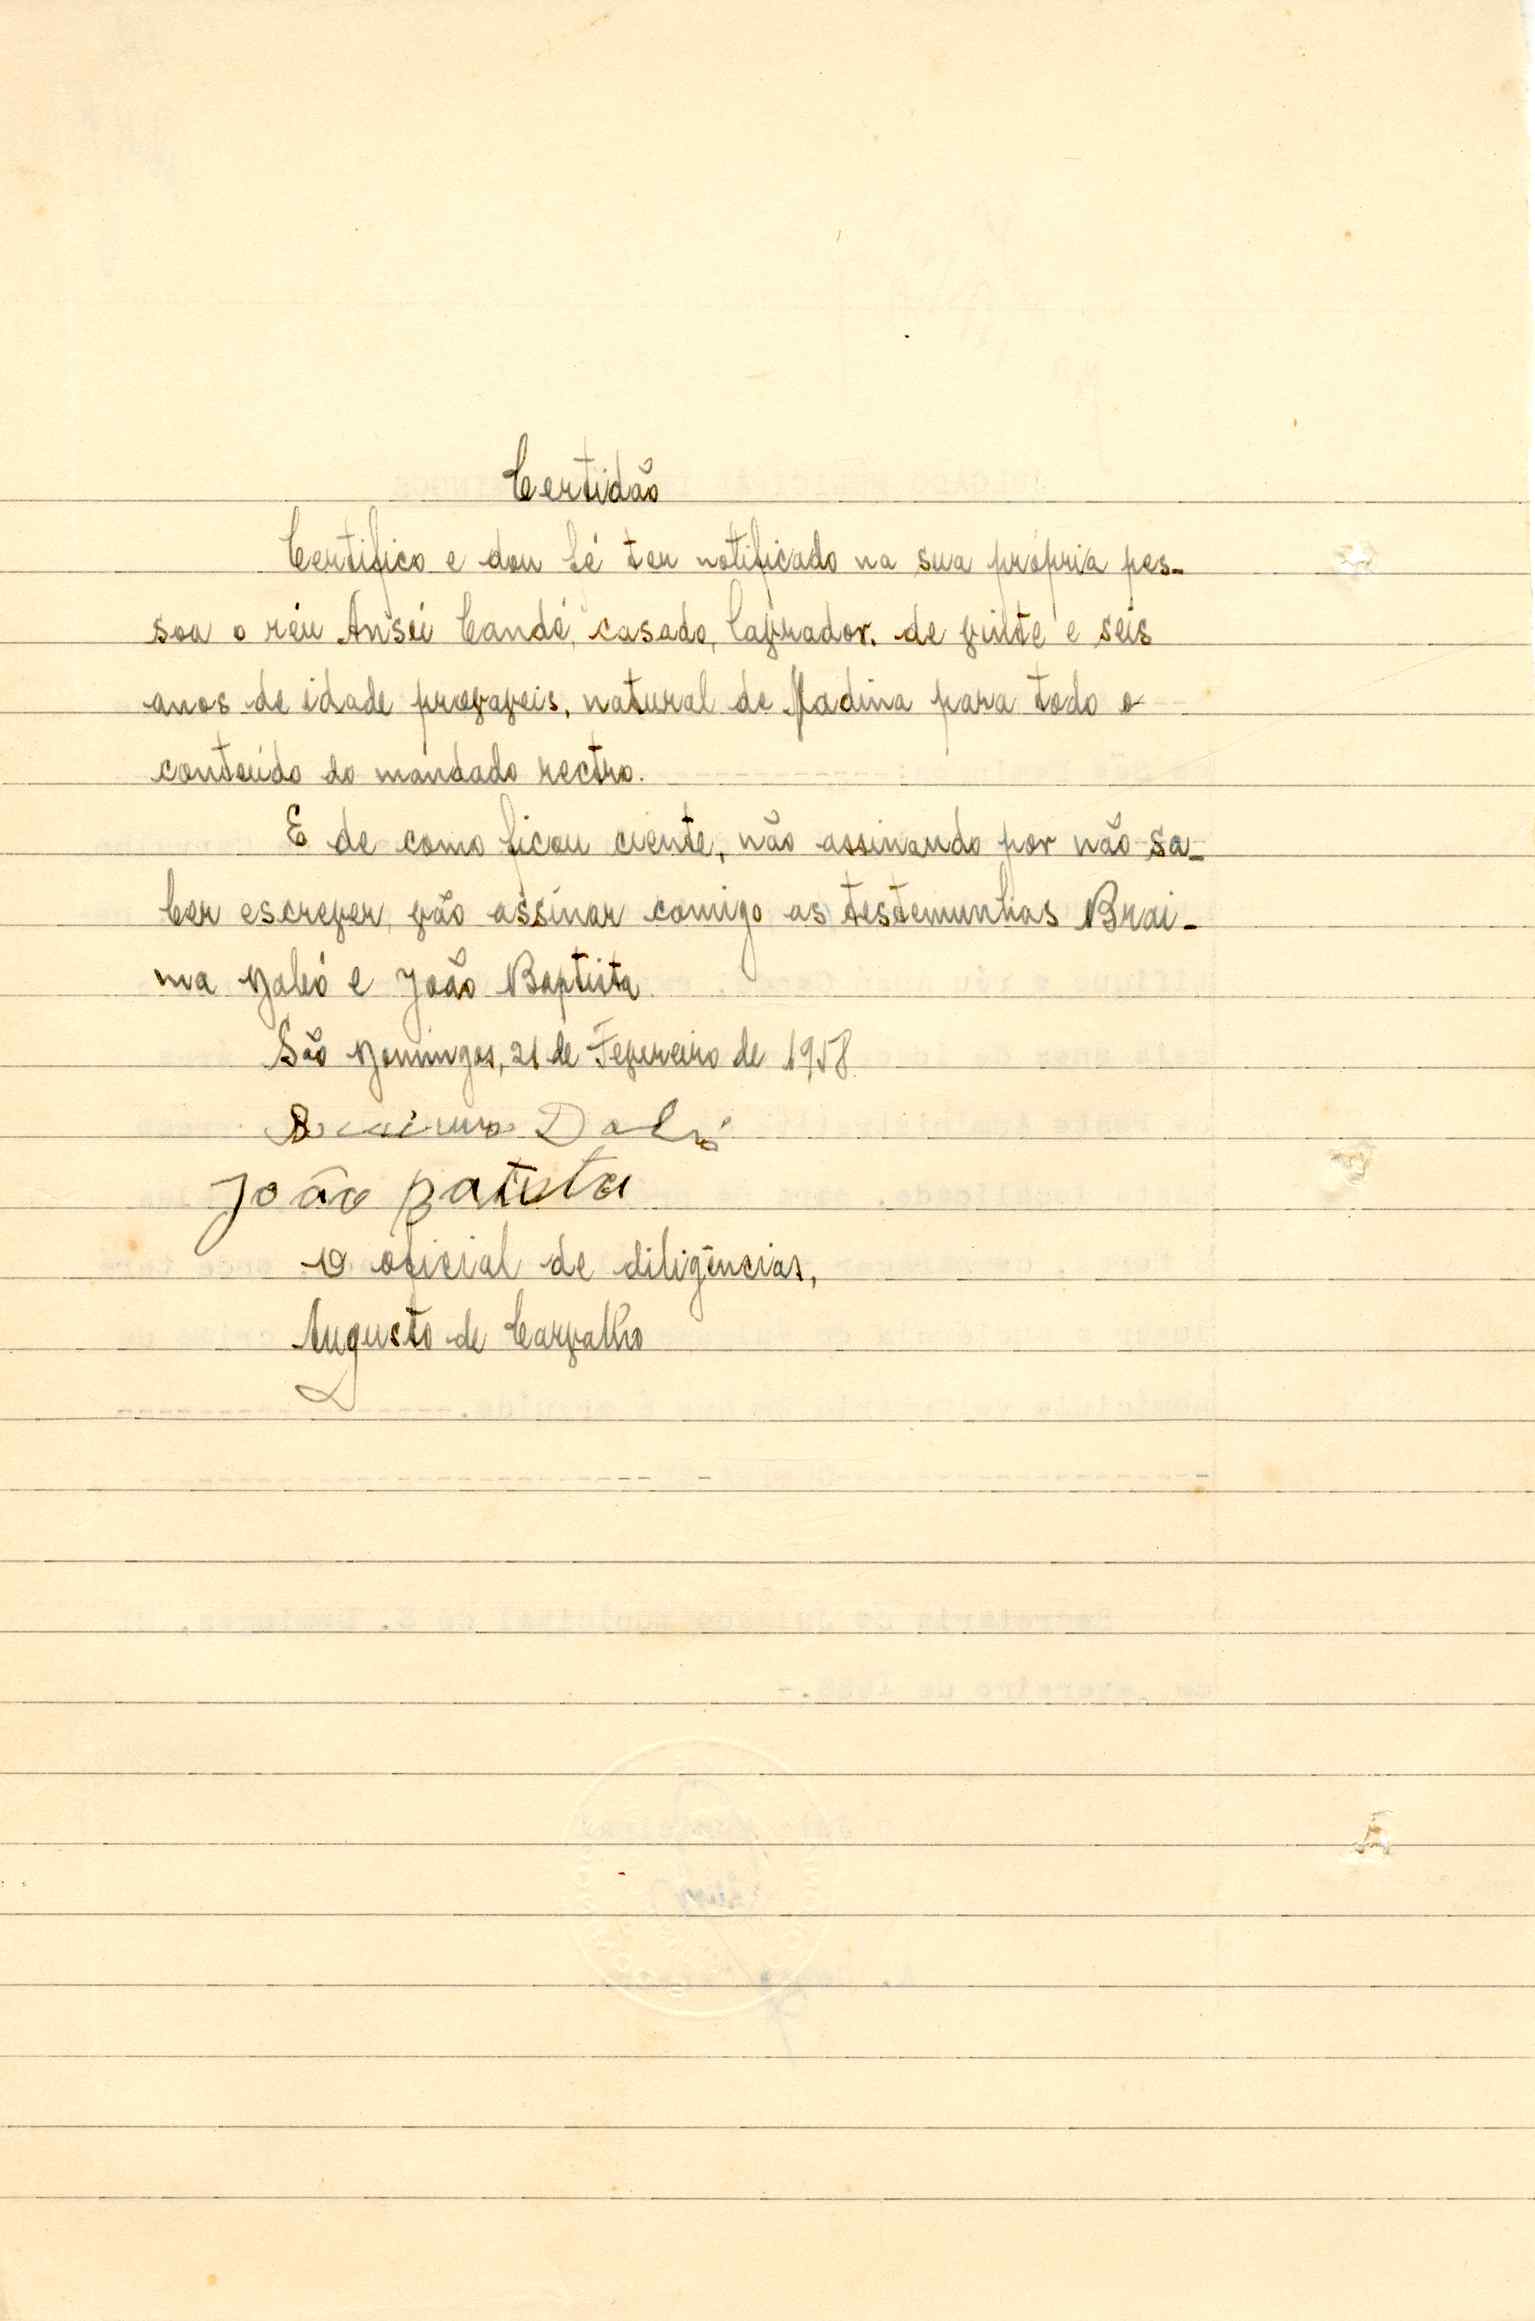 Certidão
Certifico e dou fé ter notificado na sua própria pes-
soa o réu Ansú Candé, casado, lavrador, de vinte e seis
anos de idade provaveis, natural de Madina para todo o
conteúdo do mandado rectro.
E de como ficou ciente, não assinando por não sa-
ber escrever, vão assinar comigo as testemunhas Brai-
ma Dabó e João Baptista
São Domingos, 21 de Fevereiro de 1958
Braima Dabó
João Batista
O oficial de diligências,
Augusto de Carvalho